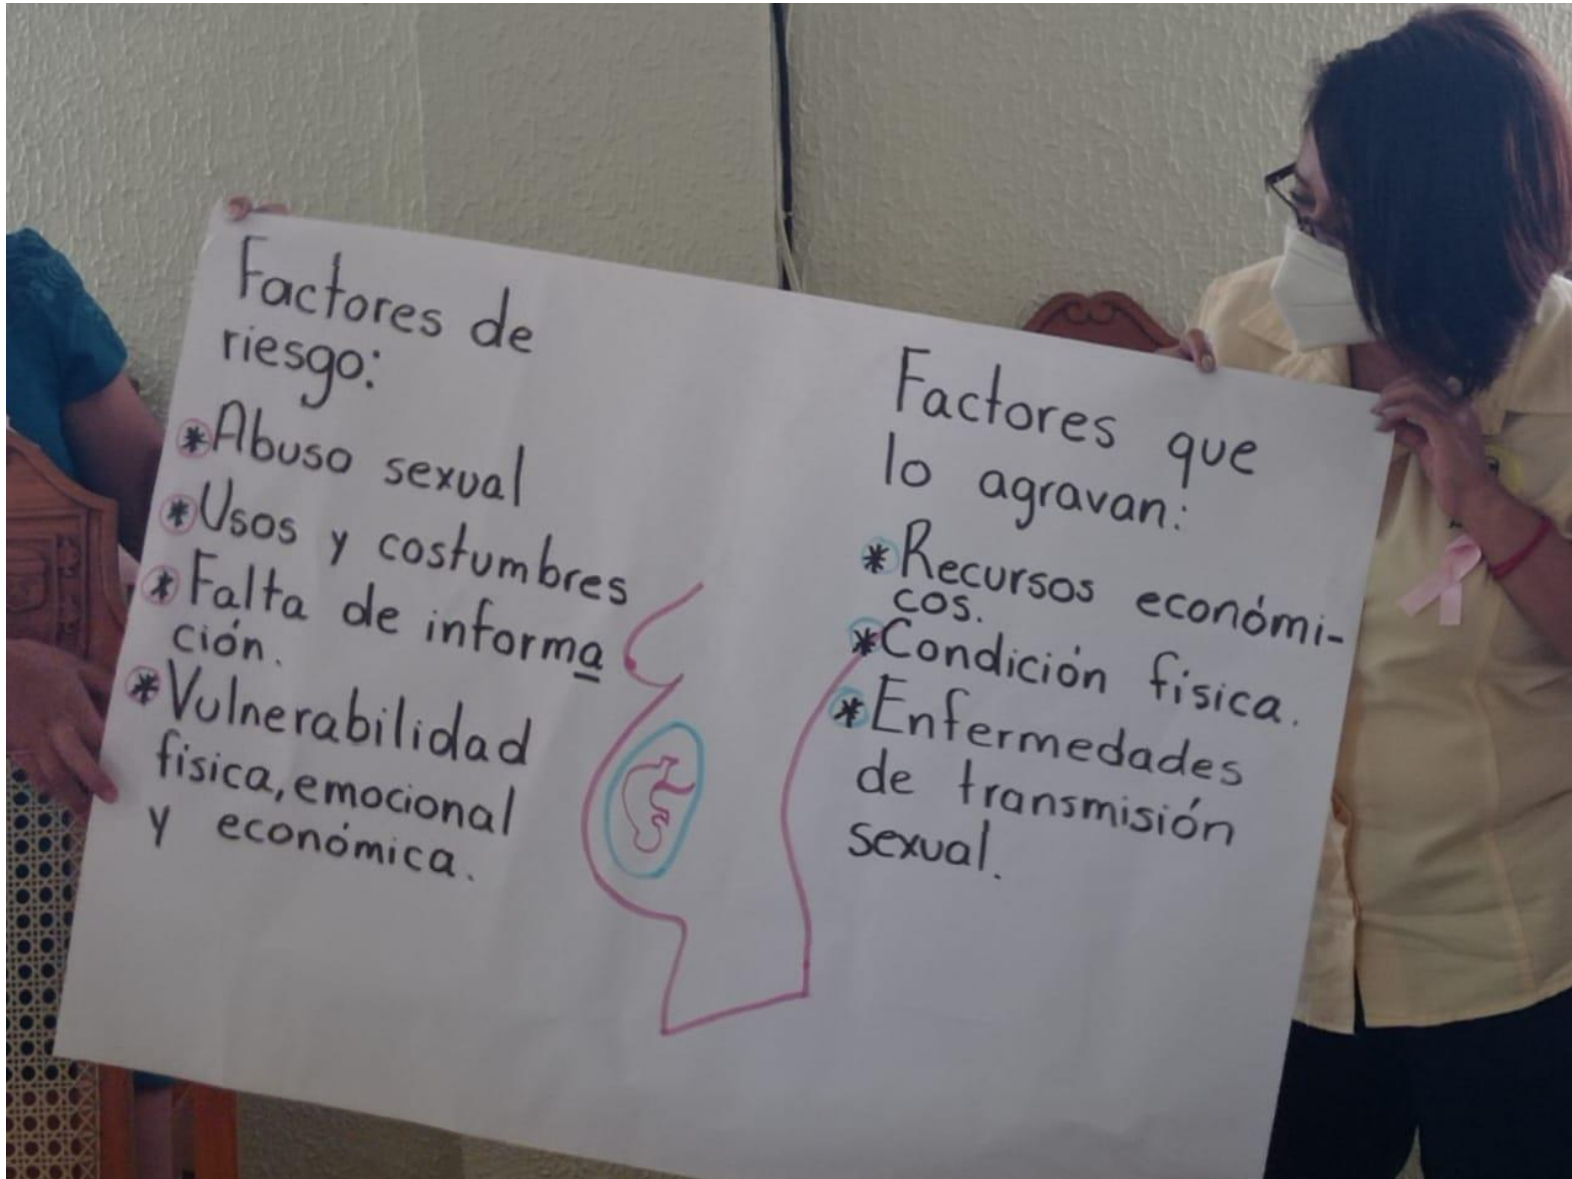 Factores de
riesgo:
*Abuso sexual
*Usos y costumbres
*Falta de informa
ción.
*Vulnerabilidad
física, emocional
y económica.
Factores que
lo agravan:
*Recursos económi-
cos.
*Condición física.
*Enfermedades
de transmisión
sexual.